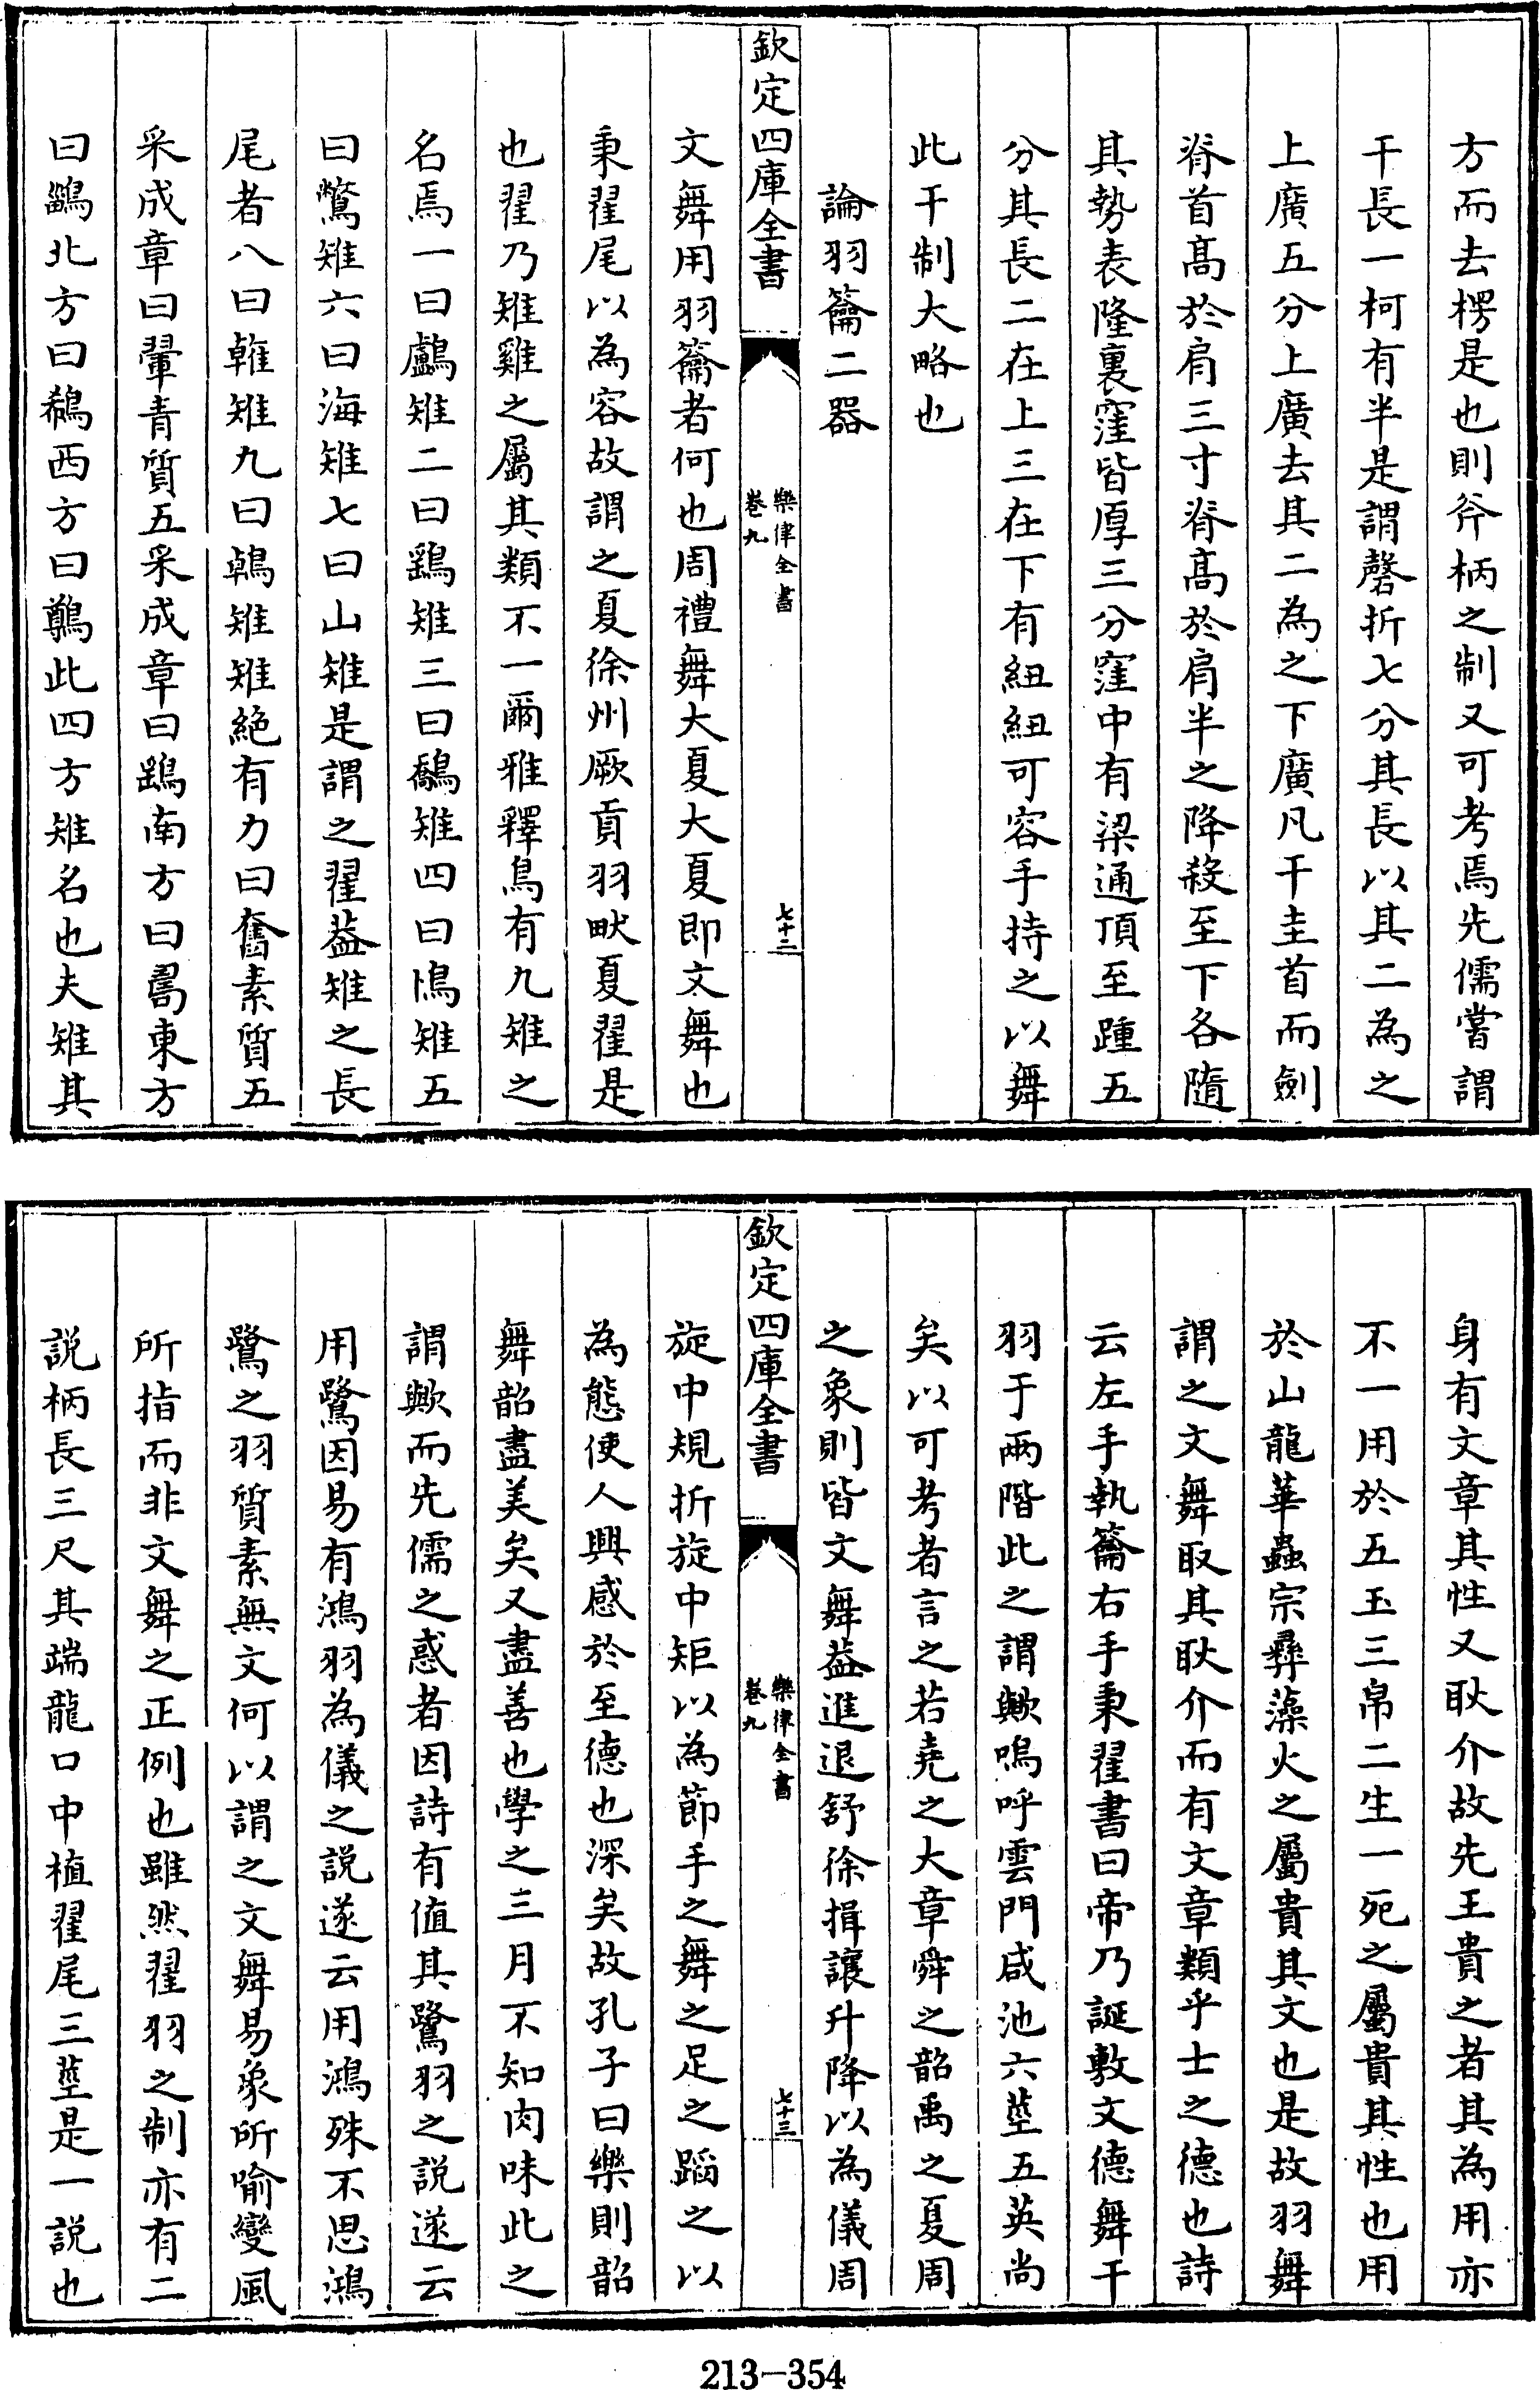 方而去楞是也則斧柄之制又可考焉先儒嘗謂
干長一柯有半是謂磬折七分其長以其二為之
上廣五分上廣去其二為之下廣凡干圭首而劍
脊首髙於肩三寸脊髙於肩半之降殺至下各隨
其勢表隆裏窪皆厚三分窪中有梁通頂至踵五
分其長二在上三在下有紐紐可容手持之以舞
此干制大略也
論羽籥二器
欽定四庫全書
樂律全書
卷九
七十二
文舞用羽籥者何也周禮舞大夏大夏即文舞也
秉翟尾以為容故謂之夏徐州厥貢羽畎夏翟是
也翟乃雉雞之屬其類不一爾雅釋鳥有九雉之
名焉一曰鸕雉二曰鷂雉三曰鷮雉四曰鳪雉五
曰鷩雉六曰海雉七曰山雉是謂之翟葢雉之長
尾者八曰雗雉九曰鵫雉雉絶有力曰奮素質五
采成章曰翬青質五采成章曰鷂南方曰𠷎東方
曰鶅北方曰鵗西方曰鷷此四方雉名也夫雉其
身有文章其性又耿介故先王貴之者其為用亦
不一用於五玉三帛二生一死之屬貴其性也用
於山龍華蟲宗彞藻火之屬貴其文也是故羽舞
謂之文舞取其耿介而有文章類乎士之德也詩
云左手執籥右手秉翟書曰帝乃誕敷文德舞干
羽于兩階此之謂歟嗚呼雲門咸池六莖五英尚
矣以可考者言之若堯之大章舜之韶禹之夏周
之象則皆文舞葢進退舒徐揖讓升降以為儀周
欽定四庫全書
樂律全書
卷九
七十三
旋中規折旋中矩以為節手之舞之足之蹈之以
為態使人興感於至德也深矣故孔子曰樂則韶
舞韶盡美矣又盡善也學之三月不知肉味此之
謂歟而先儒之惑者因詩有值其鷺羽之說遂云
用鷺因易有鴻羽為儀之說遂云用鴻殊不思鴻
鷺之羽質素無文何以謂之文舞易象所喻變風
所指而非文舞之正例也雖然翟羽之制亦有二
說柄長三尺其端龍口中植翟尾三莖是一說也
213-354